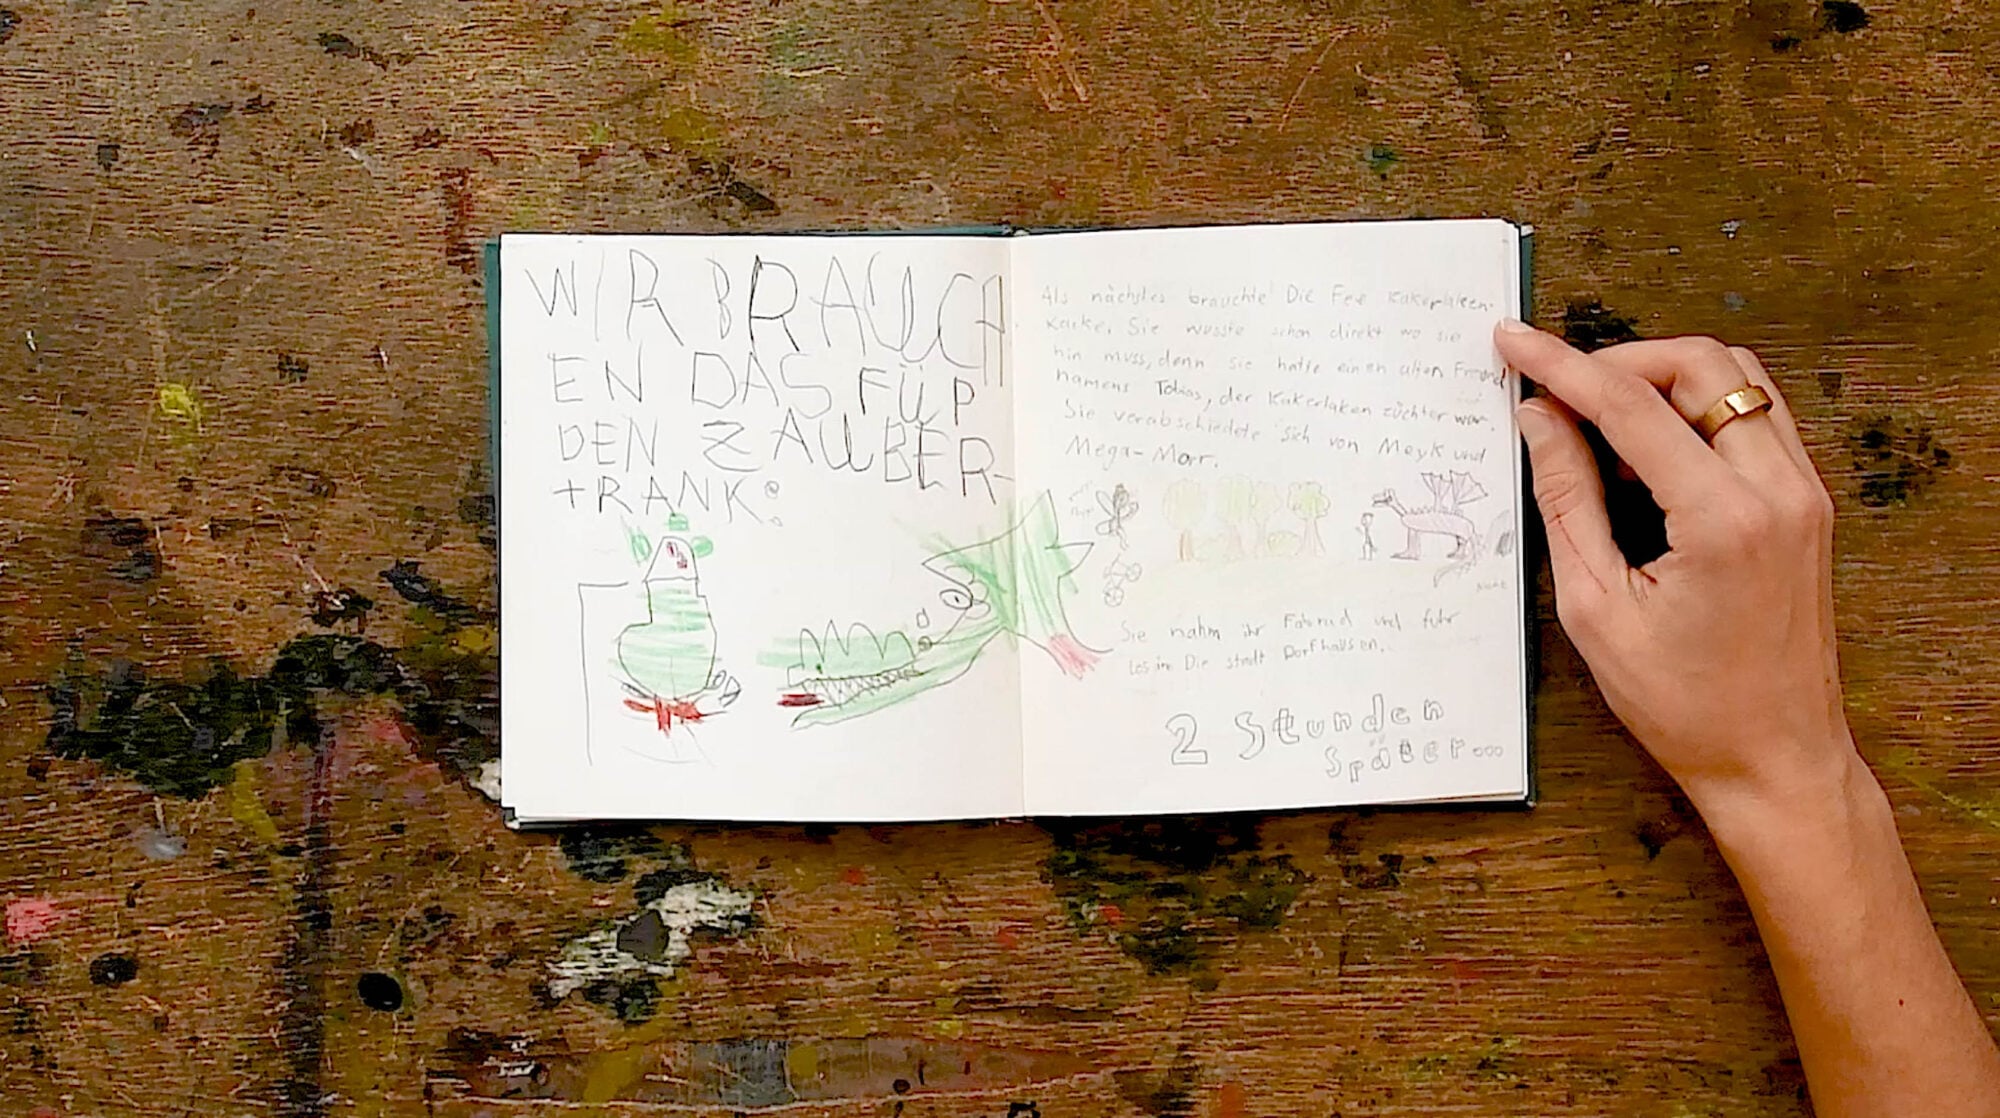 WIR BRAUCH
EN DAS FÜR
DEN ZAUBER-
TRANK:
Als nächstes brauchte Die Fee Kakerlaken-
Kacke. Sie wusste schon direkt wo sie
hin muss, denn sie hatte einen alten Freund
namens Tobias, der Kakerlaken züchter war.
Sie verabschiedete sich von Meyk und
Mega-Morr.
Sie nahm ihr Fahrrad und fuhr
los in Die stadt Dorfhausen..
2 Stunden
später...